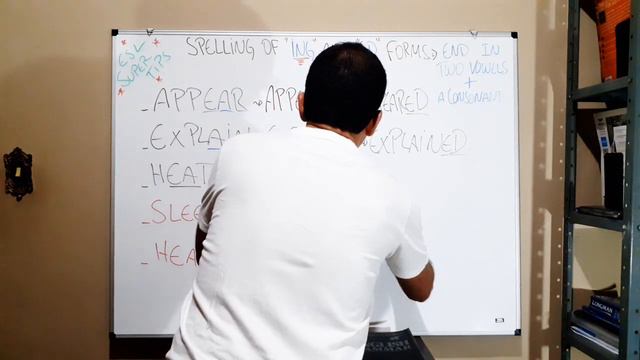 ESL
SUPER
TIPS
SPELLING OF "ING" FORMS → END IN
TWO VOWELS
+
A CONSONANT
- APPEAR → APPE ARED
- EXPLAIN EXPLAINED
- HEAT
- SLEE
- HEA